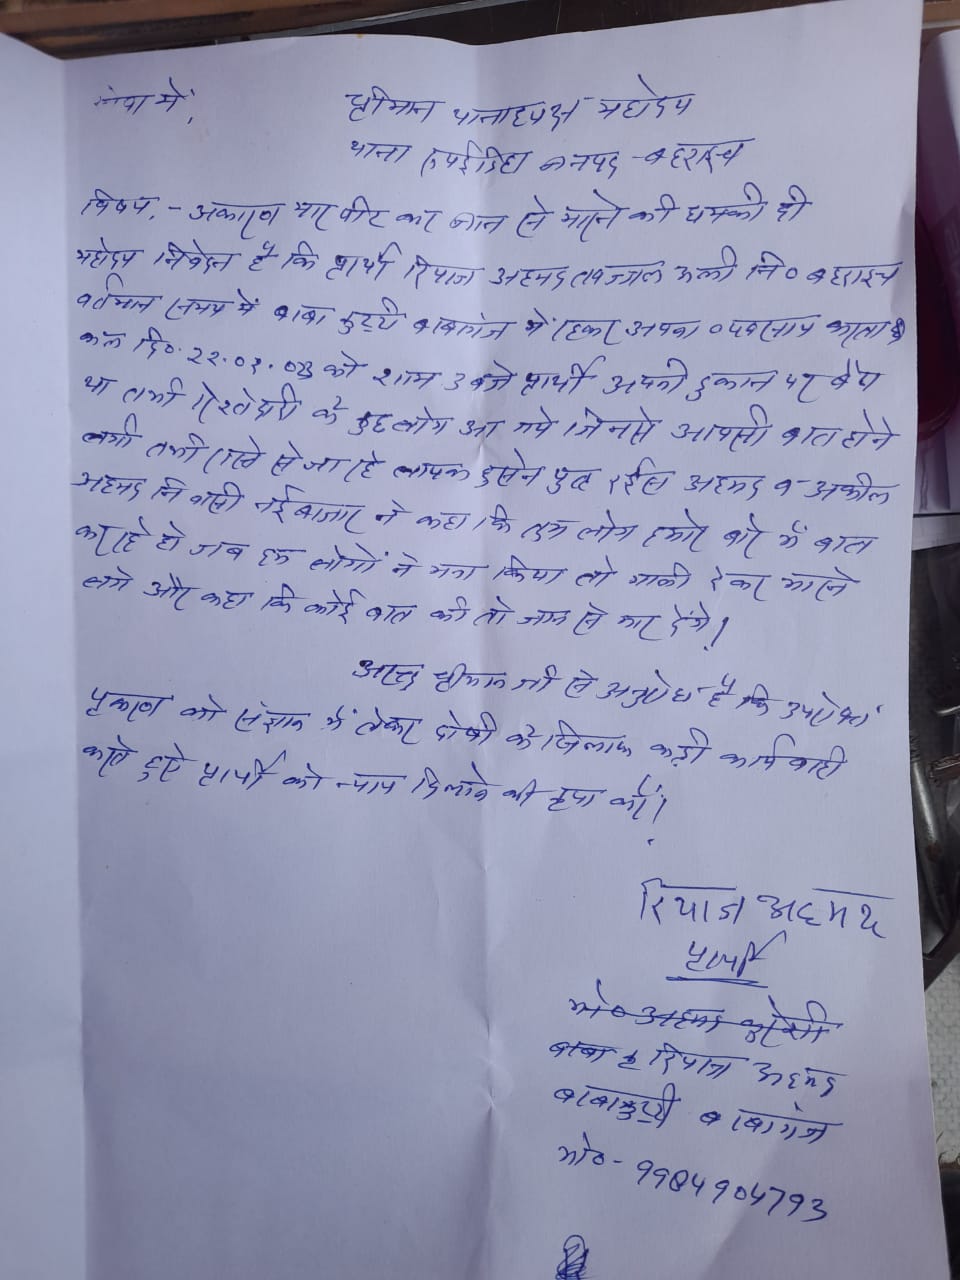 सेवा में,
श्रीमान थानाध्यक्ष महोदय
थाना रुपईडिहा जनपद - बहराइच
विषय - अकारण मार पीट कर जान से मारने की धमकी दी
महोदय निवेदन है कि प्रार्थी रियाज अहमद तवज्जाल अली नि० बहराइच
वर्तमान समय में बाबा कुट्टी बाबागंज में रहकर अपना व्यवसाय करता है
कल दि० 22.01. को शाम 3 बजे प्रार्थी अपनी दुकान पर बैठा
था तभी रिश्तेदारी के कुछ लोग आ गये जिनसे आपसी बात होने
लगी तभी रास्ते से जा रहे लायक हुसेन पुत्र रईस अहमद व अकील
अहमद निवासी नईबाजार ने कहा कि तुम लोग हमारे बारे में बात
कर रहे हो जब हम लोगों ने मना किया तो गाली देकर मारने
लगे और कहा कि कोई बात की तो जान से मार देंगे।
अतः श्रीमान जी से अनुरोध है कि उपरोक्त
प्रकरण को संज्ञान में लेकर दोषी के खिलाफ कड़ी कार्यवाही
करते हुये प्रार्थी को न्याय दिलाने की कृपा करें।
रियाज अहमद
प्रार्थी
मो० अहमद कुरेशी
बाबा कु रियाज अहमद
बाबाकुट्टी बाबागंज
मो० - 9984904793